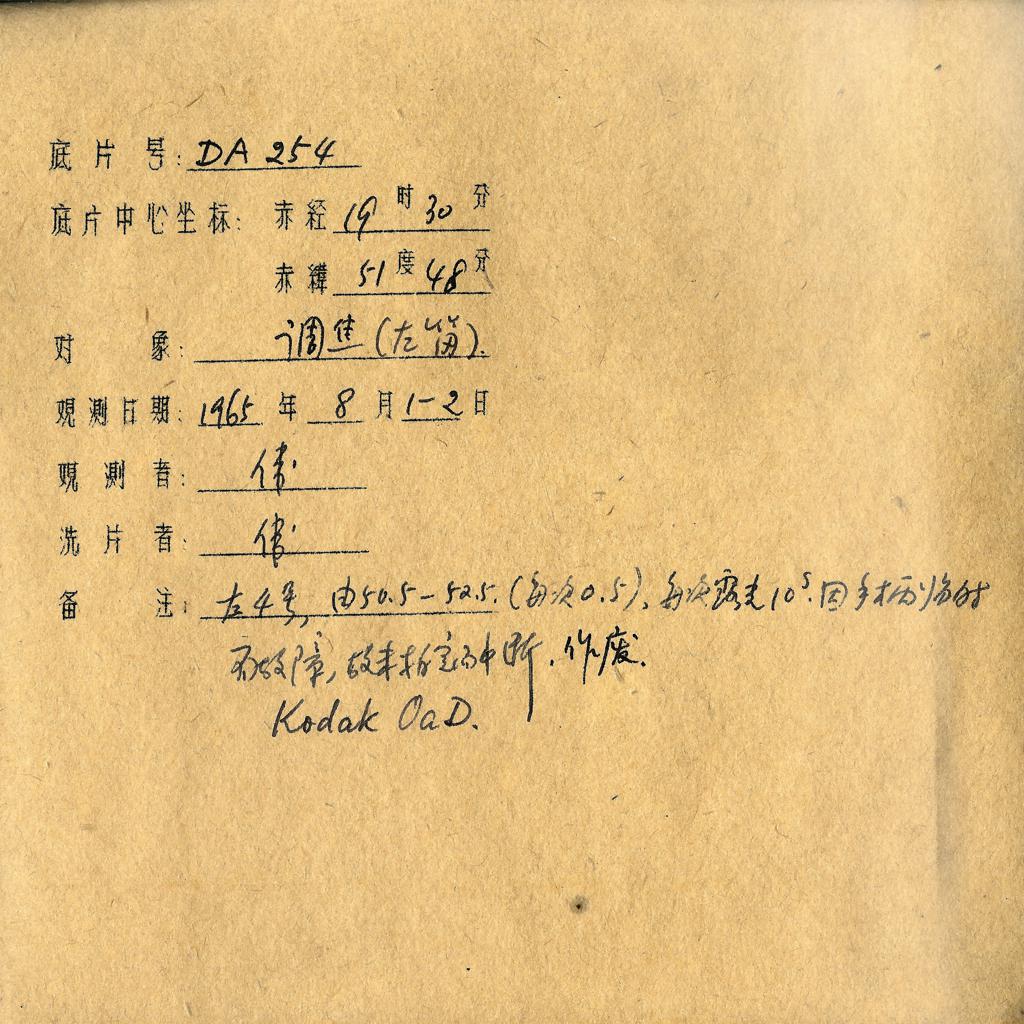 底片号: DA 254
底片中心坐标: 赤经 19时30分
赤纬 51度48分
对象: 调焦(左筒).
观测日期: 1965年8月1-2日
观测者:
洗片者:
备注: 左4号, 由50.5-52.5.(每次0.5), 每次露光10ˢ.因手柄临时
有故障, 故未拍完而中断, 作废.
Kodak OaD.